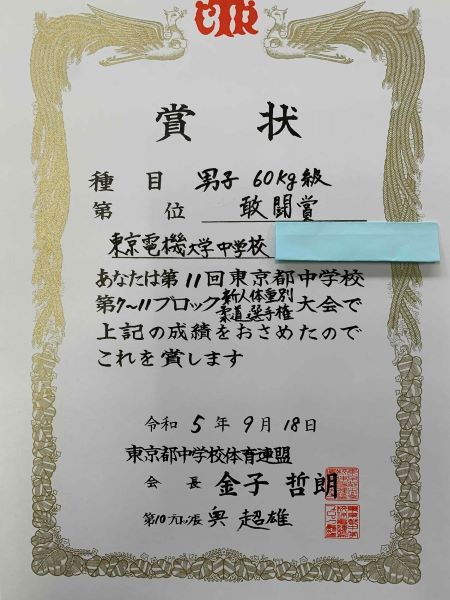 賞状
種目 男子 60kg級
第 位 敢闘賞
東京電機大学中学校
あなたは第11回東京都中学校
第7〜11ブロック新人体重別柔道選手権大会で
上記の成績をおさめたので
これを賞します
令和5年9月18日
東京都中学校体育連盟
会長 金子哲朗
第10ブロック長 奥超雄